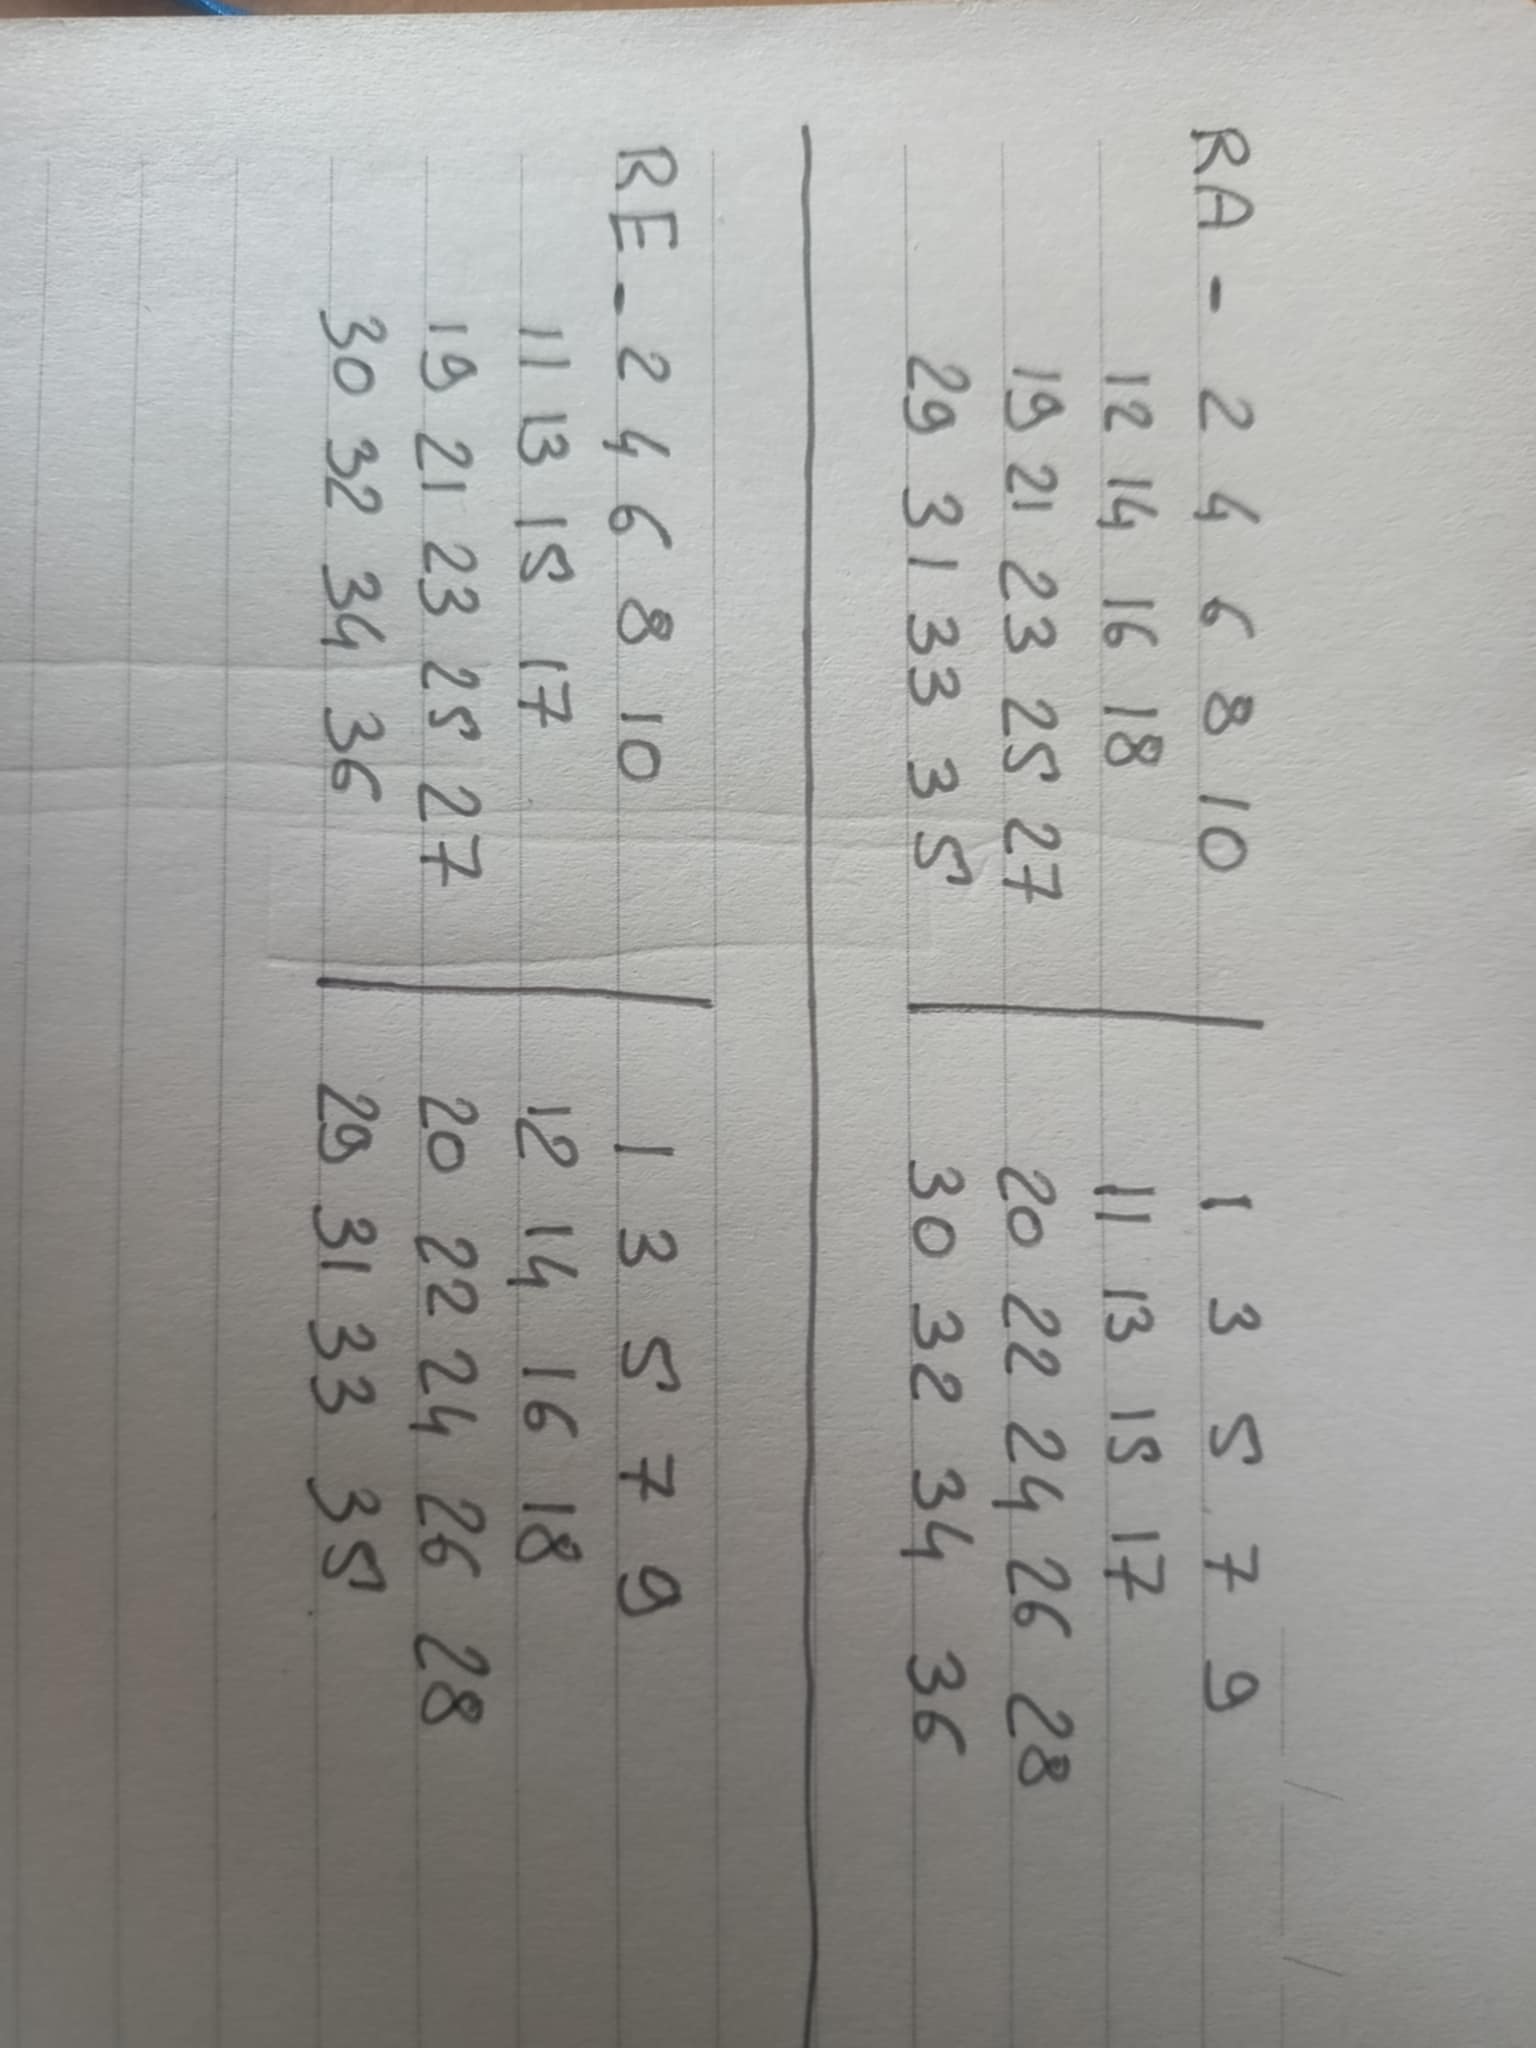 RA - 2 4 6 8 10 | 1 3 5 7 9
12 14 16 18 | 11 13 15 17
19 21 23 25 27 | 20 22 24 26 28
29 31 33 35 | 30 32 34 36
RE - 2 4 6 8 10 | 1 3 5 7 9
11 13 15 17 | 12 14 16 18
19 21 23 25 27 | 20 22 24 26 28
30 32 34 36 | 29 31 33 35